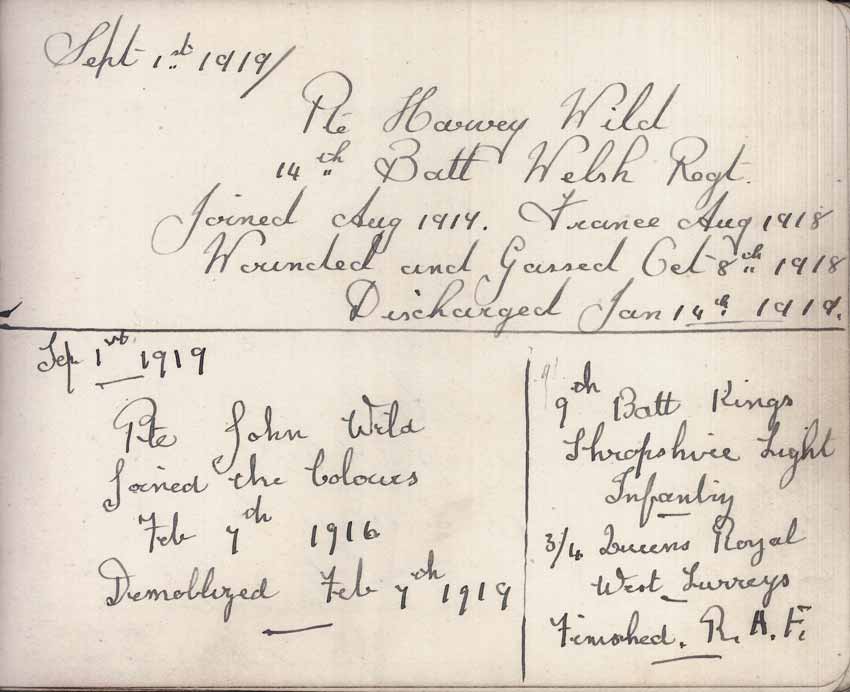 Sept 1st 1919/
Pte Harvey Wild
14th Batt Welsh Regt.
Joined Aug 1917. France Aug 1918
Wounded and Gassed Oct 8th 1918
Discharged Jan 14th 1919.
Sep 1st 1919
Pte John Wild
Joined the Colours
Feb 7th 1916
Demoblized Feb 7th 1919
9th Batt Kings
Shropshire Light
Infantry
3/4 Queens Royal
West Surreys
Finished. R.A.F.